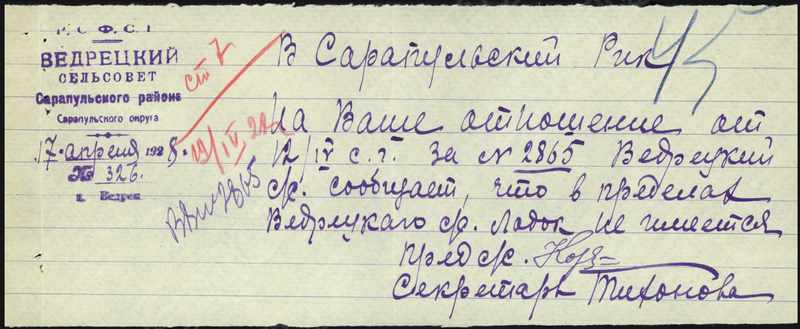 Р. С. Ф. С. Р.
ВЕДРЕЦКИЙ
СЕЛЬСОВЕТ
Сарапульского района
Сарапульского округа
17 апреля 1928 г.
№ 326.
с. Ведрец
В Сарапульский Рик
45
На Ваше отношение от
12/IV с. г. за № 2865 Ведрецкий
с/с. сообщает, что в пределах
Ведрецкаго с/с. лодок не имеется
Пред с/с.
Секретарь Тихонова
19/IV 28
2865